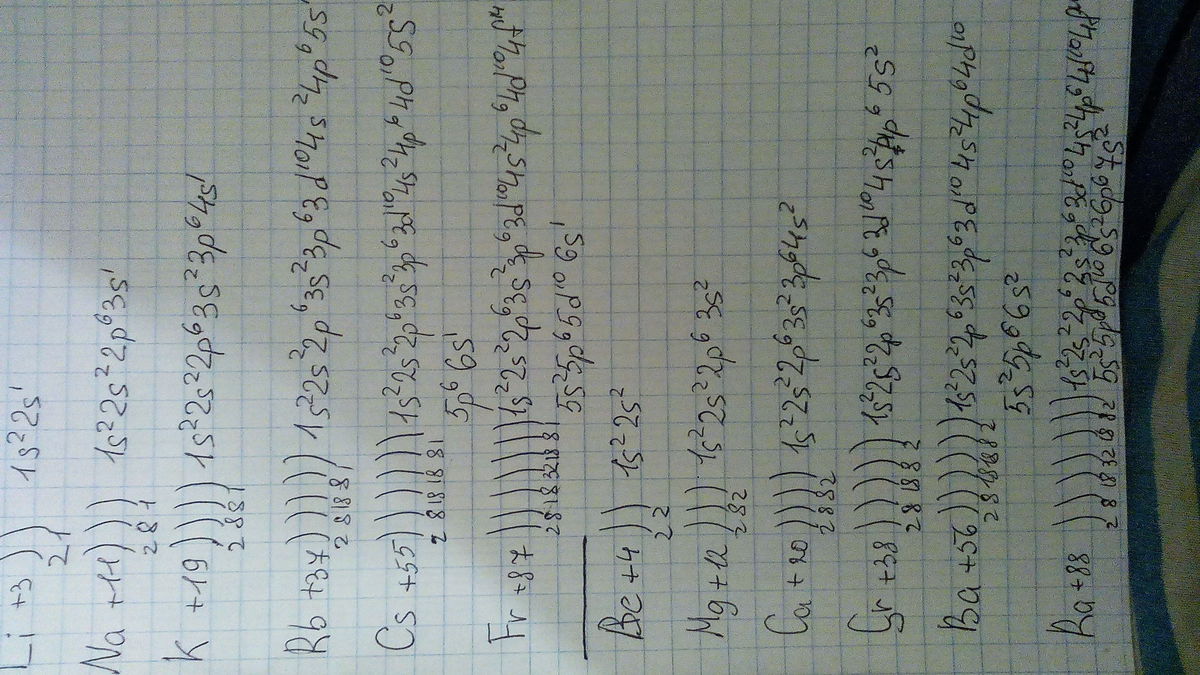 Li +3 )) 1s²2s¹
2 1
Na +11 ))) 1s²2s²2p⁶3s¹
2 8 1
K +19 )))) 1s²2s²2p⁶3s²3p⁶4s¹
2 8 8 1
Rb +37 ))))) 1s²2s²2p⁶3s²3p⁶3d¹⁰4s²4p⁶5s¹
2 8 18 8 1
Cs +55 )))))) 1s²2s²2p⁶3s²3p⁶3d¹⁰4s²4p⁶4d¹⁰5s²
2 8 18 18 8 1 5p⁶6s¹
Fr +87 ))))))) 1s²2s²2p⁶3s²3p⁶3d¹⁰4s²4p⁶4d¹⁰4f¹⁴
2 8 18 32 18 8 1 5s²5p⁶5d¹⁰6s¹
Be +4 )) 1s²2s²
2 2
Mg +12 ))) 1s²2s²2p⁶3s²
2 8 2
Ca +20 )))) 1s²2s²2p⁶3s²3p⁶4s²
2 8 8 2
Sr +38 ))))) 1s²2s²2p⁶3s²3p⁶3d¹⁰4s²4p⁶5s²
2 8 18 8 2
Ba +56 )))))) 1s²2s²2p⁶3s²3p⁶3d¹⁰4s²4p⁶4d¹⁰
2 8 18 18 8 2 5s²5p⁶6s²
Ra +88 ))))))) 1s²2s²2p⁶3s²3p⁶3d¹⁰4s²4p⁶4d¹⁰4f¹⁴
2 8 18 32 18 8 2 5s²5p⁶5d¹⁰6s²6p⁶7s²